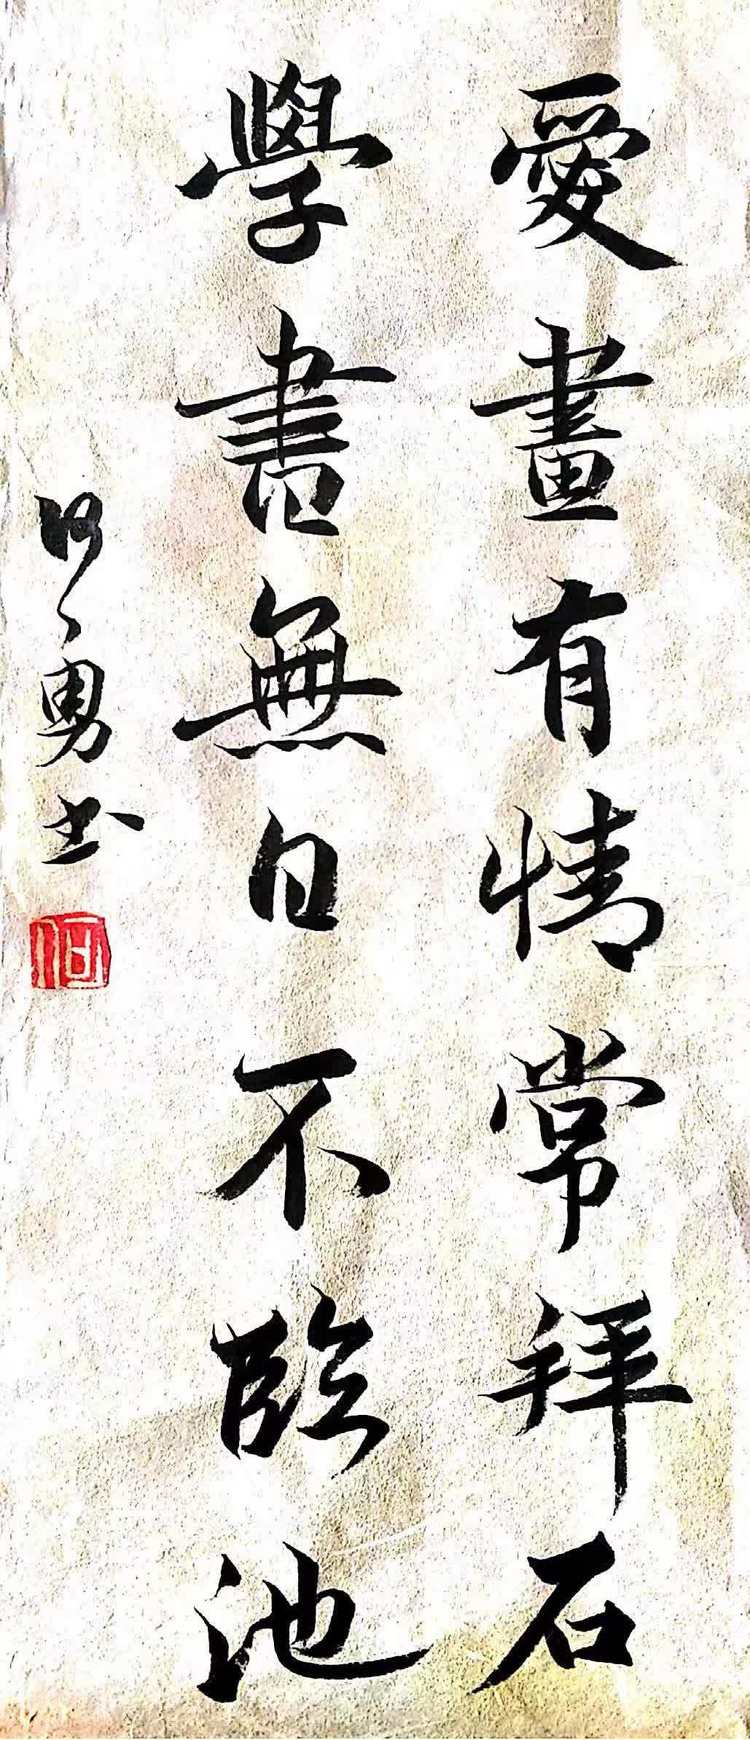 愛畫有情常拜石
學書無日不臨池
何勇书
何